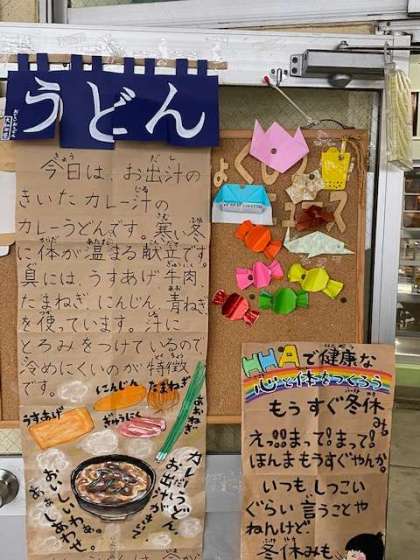 うどん
きょう だ し
今日は、お出汁の
じる
きいたカレー汁の
さむ ふゆ
カレーうどんです。寒い冬
からだ あたた こんだて
に体が温まる献立です。
具には、うすあげ、牛肉、
たまねぎ、にんじん、青ねぎ
を使っています。汁に
とろみをつけているので
冷めにくいのが特徴
です。
にんじん
たまねぎ
あおねぎ
うすあげ
ぎゅうにく
カレーうどん
お出汁が
おいしいわぁ。
しあわせ。
HHAで健康な
心と体をつくろう
もうすぐ冬休み
えっ!!まって!まって!
ほんまもうすぐやんか。
いつもしつこい
ぐらい言うことや
ねんけど
冬休みも、